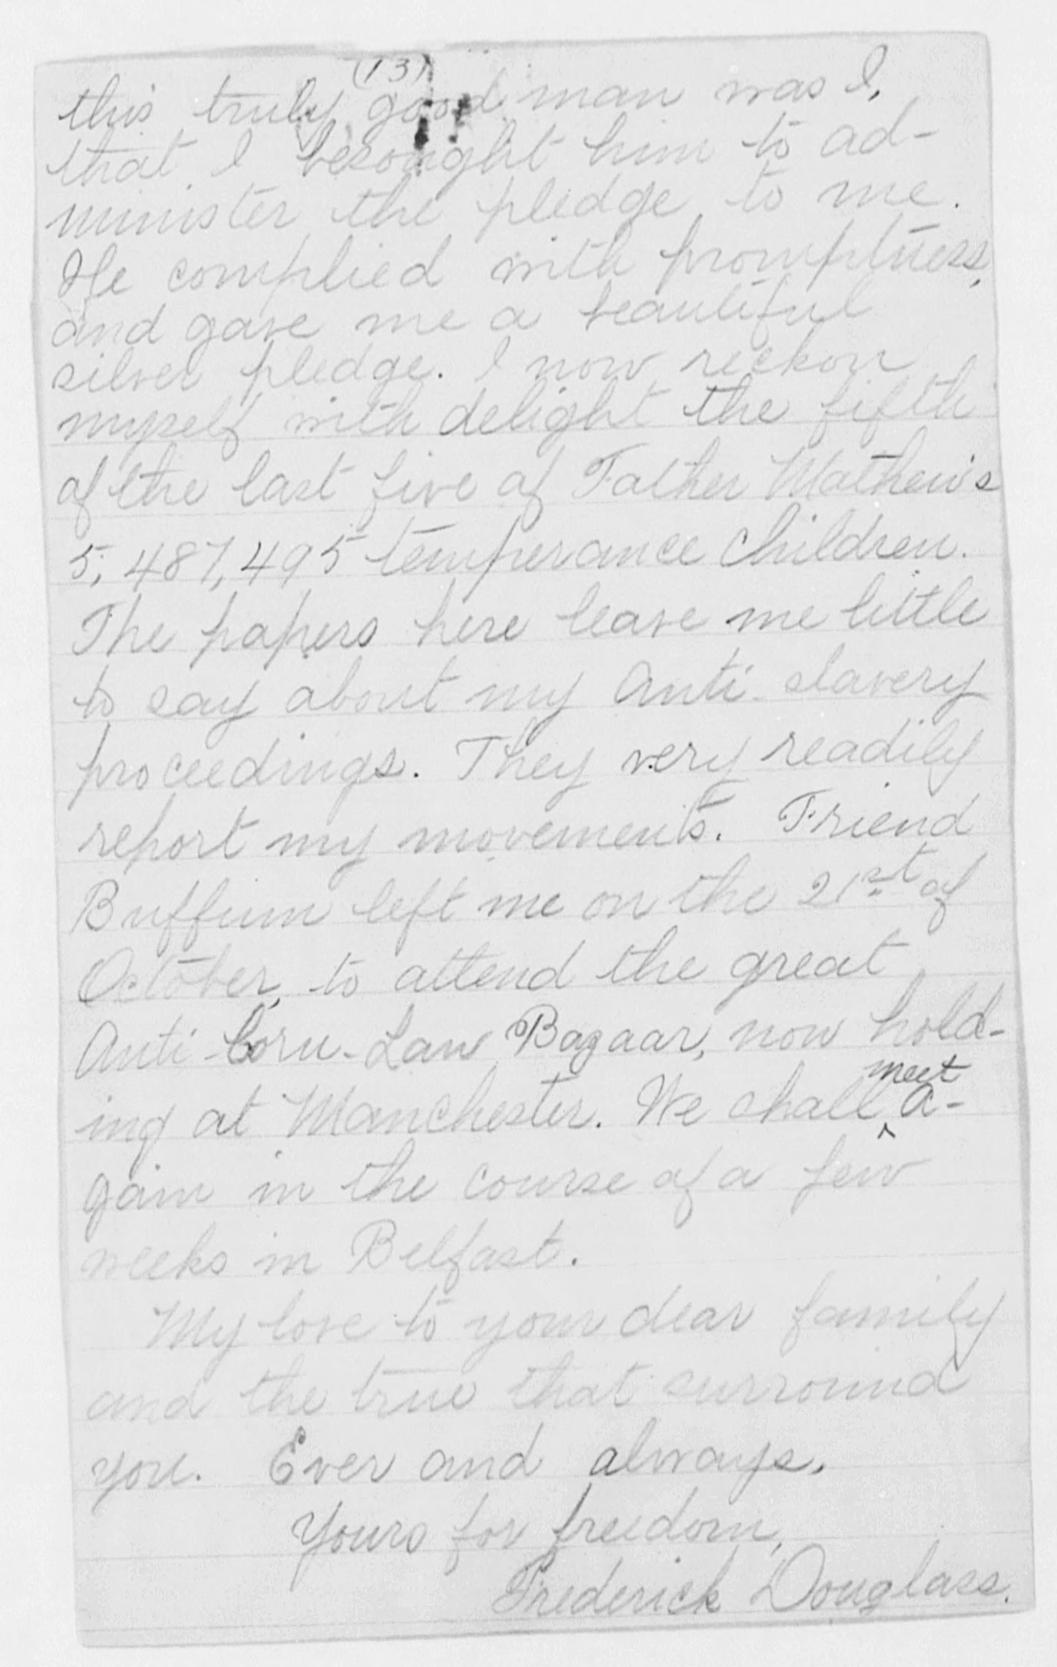 (13)
this truly good man was I,
that I besought him to ad-
minister the pledge to me.
He complied with promptness,
and gave me a beautiful
silver pledge. I now reckon
myself with delight the fifth
of the last five of Father Mathew's
5,487,495 temperance children.
The papers here leave me little
to say about my Anti-slavery
proceedings. They very readily
report my movements. Friend
Buffum left me on the 21st of
October, to attend the great
Anti-Corn-Law Bazaar, now hold-
ing at Manchester. We shall meet a-
gain in the course of a few
weeks in Belfast.
My love to your dear family
and the true that surround
you. Ever and always,
Yours for freedom,
Frederick Douglass.